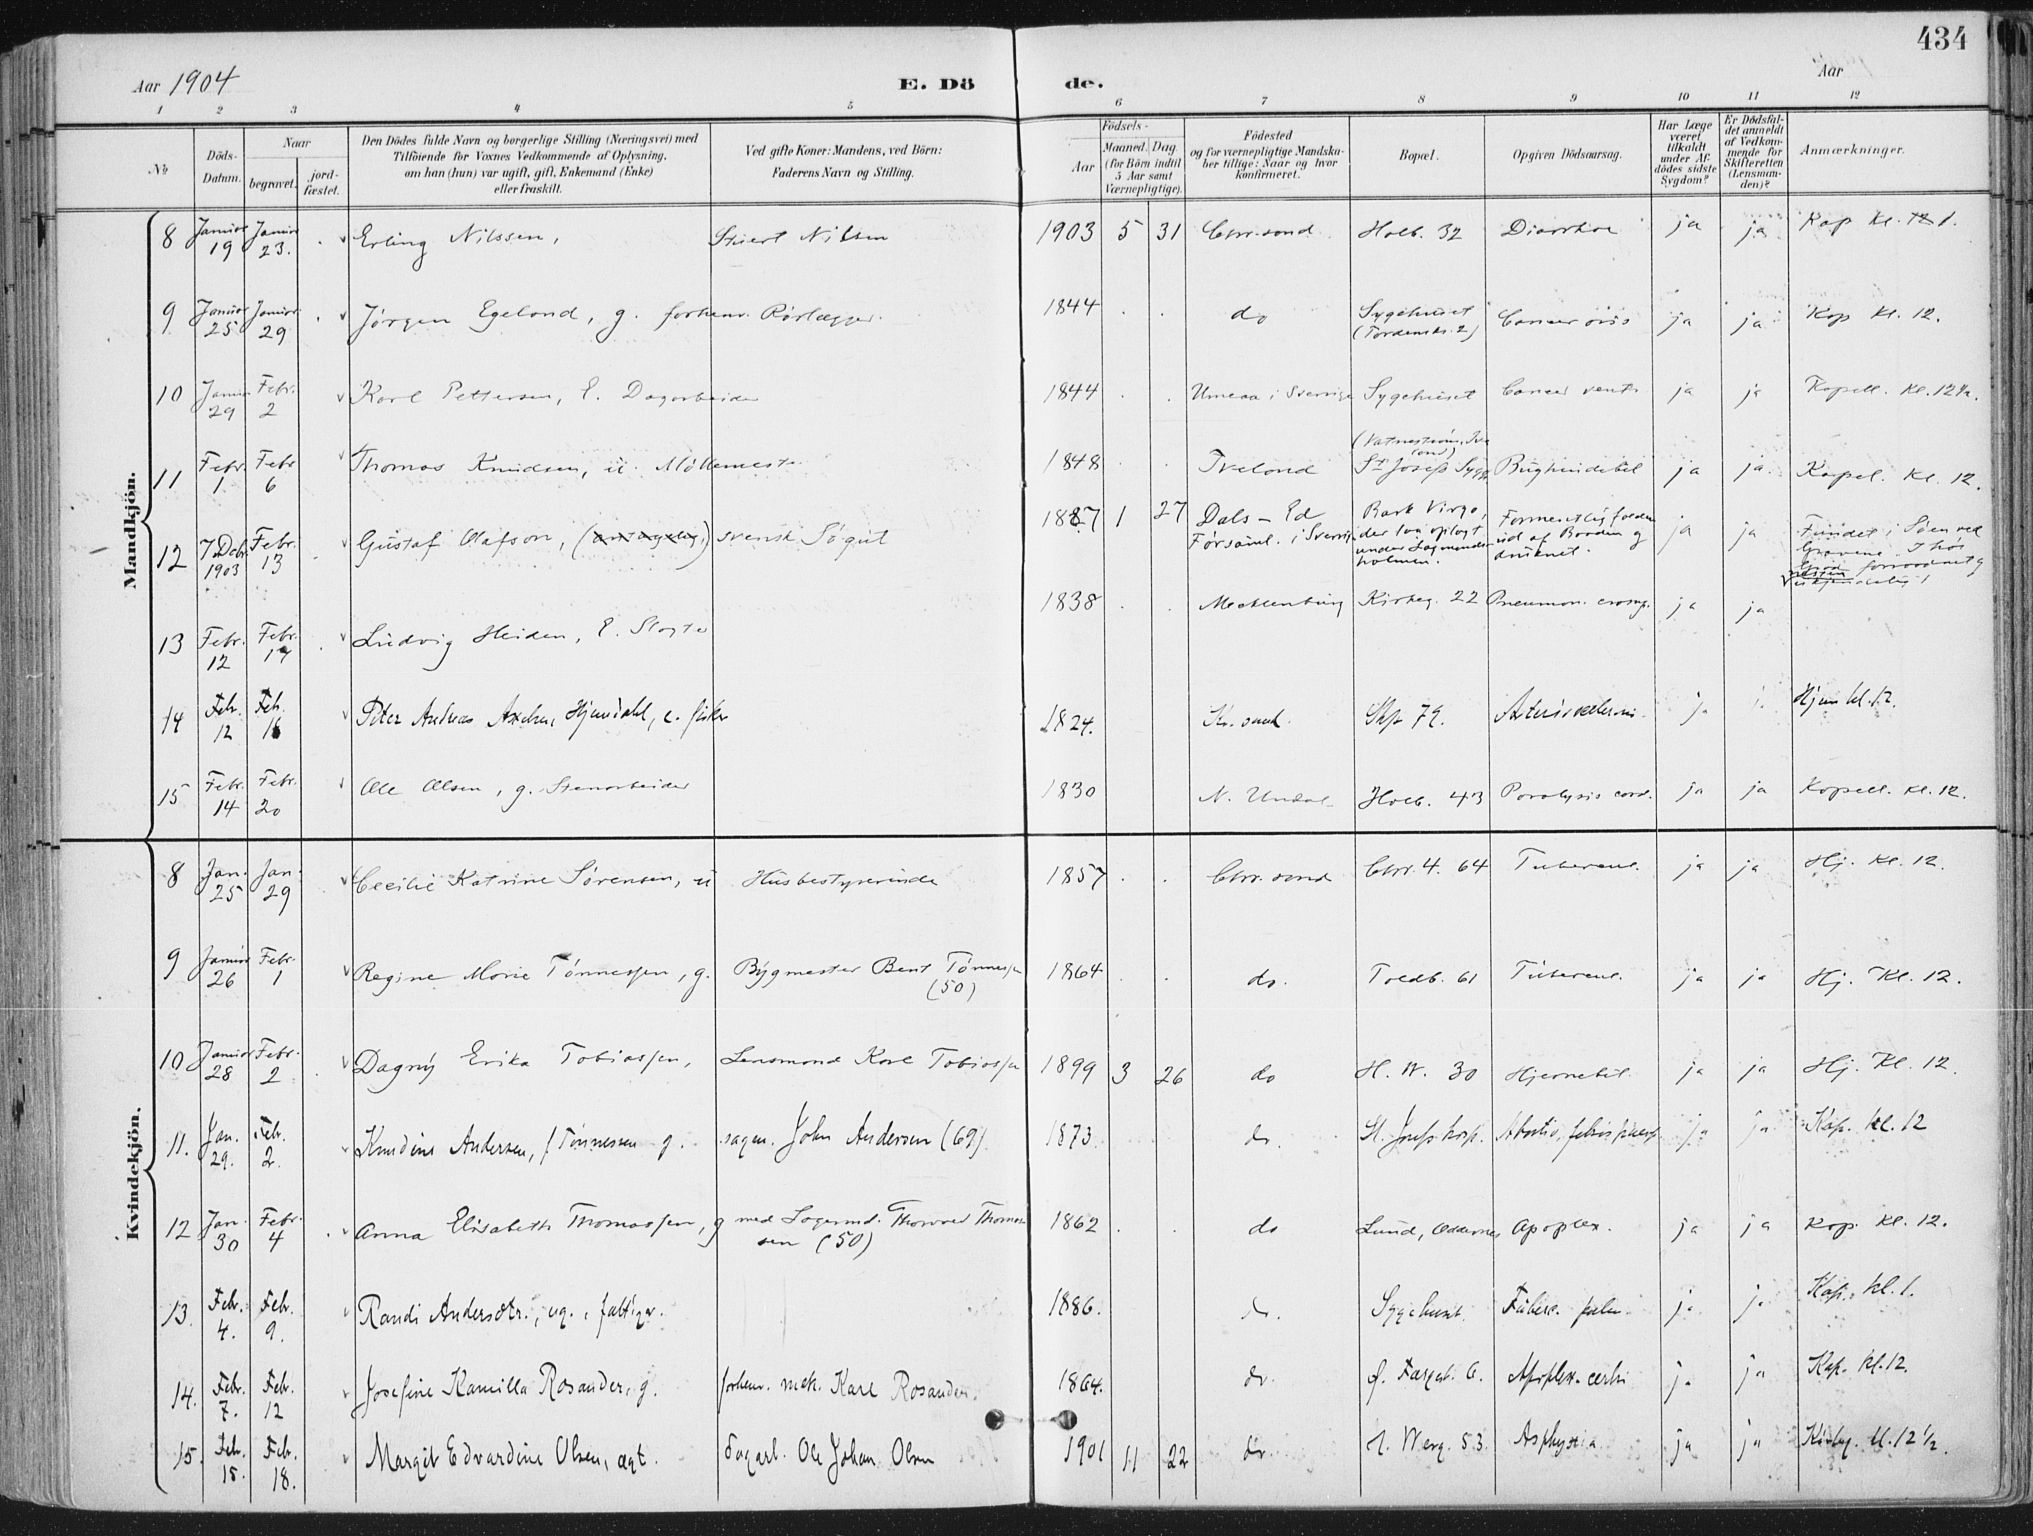 434
Aar 1904 E. Dö de. Aar
1 2 3 4 5 6 7 8 9 10 11 12
№ Döds-Datum. Naar begravet. jord-fæstet. Den Dödes fulde Navn og borgerlige Stilling (Næringsvei) med Tilföiende for Voxnes Vedkommende af Oplysning, om han (hun) var ugift, gift, Enkemand (Enke) eller fraskilt. Ved gifte Koner: Mandens, ved Börn: Faderens Navn og Stilling. Födsels- Aar Maaned. Dag. (for Börn indtil 5 Aar samt Værnepligtige). Födested og for værnepligtige Mandskaber tillige: Naar og hvor konfirmeret. Bopæl. Opgiven Dödsaarsag. Har Læge været tilkaldt under Afdödes sidste Sygdom? Er Dödsfaldet anmeldt af Vedkommende for Skifteretten (Lensmanden)? Anmærkninger.
Mandkjön.
8 Januar 19 Januar 23. Erling Nilssen, Nilsen 1903 5 31 Chr.sand Holb. 32 Diarrhoe ja ja Kap kl. 1.
9 Januar 25 Januar 29 Jørgen Egeland, g. forhenv. Rørlægger. 1844 do Sygehuset (Tordensks. 2) Cancer ja ja Kap kl. 12.
10 Januar 29 Febr. 2 Karl Pettersen, E. Dagarbeider 1844 Umeaa i Sverrige Sygehuset Cancer ventr. ja ja Kapell. Kl. 12½.
11 Febr. 1 Febr 6 Thomas Knudsen, u. Møllemester 1848 Tveland (Vatnestrøm, ) St Josefs Sygeh. Bughindebet. ja ja. Kapel. Kl. 12.
12 7 Debr. 1903 Febr. 13 Gustaf Olafson, (antagelig,) svensk Søgut 1887 1 27 Dals-Ed Førsaml. i Sverrig Bark Virgo, der laa oplagt under Lagmandsholmen. Formentlig falden ud af Baaden og druknet. ja ja Fundet i Søen ved Gravene. forraadnet og
13 Febr. 12 Febr. 17 Ludvig Heiden, E. Slagter 1838 Mecklenburg Kirkeg. 22 Pneumon. ja ja
14 Feb. 12 Feb. 16 Peter Andreas Axelsen Hjemdahl, e. fisker 1824. Kr.sand Skp 79. ja Hjem kl. 12.
15 Febr. 14 Febr. 20 Ole Olsen, g. Stenarbeider 1830 N. Undal Holb. 43 Paralysis cord. ja ja Kapell. kl. 12.
Kvindekjön.
8 Jan. 25 Jan. 29 Cecilie Katrine Sørensen, u Husbestyrerinde 1857 Chr.sand Chr. 4. 64 Tubercul. ja ja Hj. Kl. 12.
9 Januar 26 Febr. 1 Regine Marie Tønnessen, g. Bygmester Bent Tønnessen (50) 1864 do. Toldb. 61 Tubercul. ja ja Hj. Kl. 12.
10 Januar 28 Febr. 2 Dagny Erika Tobiassen, Lensmand Karl Tobiassen 1899 3 26 do H. W. 30 Hjernebet. ja ja Hj. Kl. 12.
11. Jan. 29. Feb. 2. Knudine Andersen, f Tønnessen g. sagm. John Andersen (69) 1873. do. St. Josefs hosp. Abortio, febris puerp. ja ja Kap. kl. 12
12 Jan. 30 Febr. 4 Anna Elisabeth Thomassen, g med Lagermd. Thorvald Thomassen (50) 1862 do Lund, Oddernes Apoplex. ja ja Kap. Kl. 12.
13. Feb. 4. Feb. 9. Randi Andersdtr., ug., fattiggr. 1886. do. Sygehuset. Tuberc. pulm. ja ja Kap. kl. 1.
14. Feb. 7. Feb. 12 Josefine Kamilla Rosander, g. forhenv. mek. Karl Rosander. 1864. do. 6. Apoplex. cerebri ja ja Kap. kl. 12.
15. Feb. 15. Feb. 18. Margit Edvardine Olsen, ægt. Dagarb. Ole Johan Olsen 1901 11 22 do. H. Werg. 53. Asphyxia. ja ja kl. 12½.